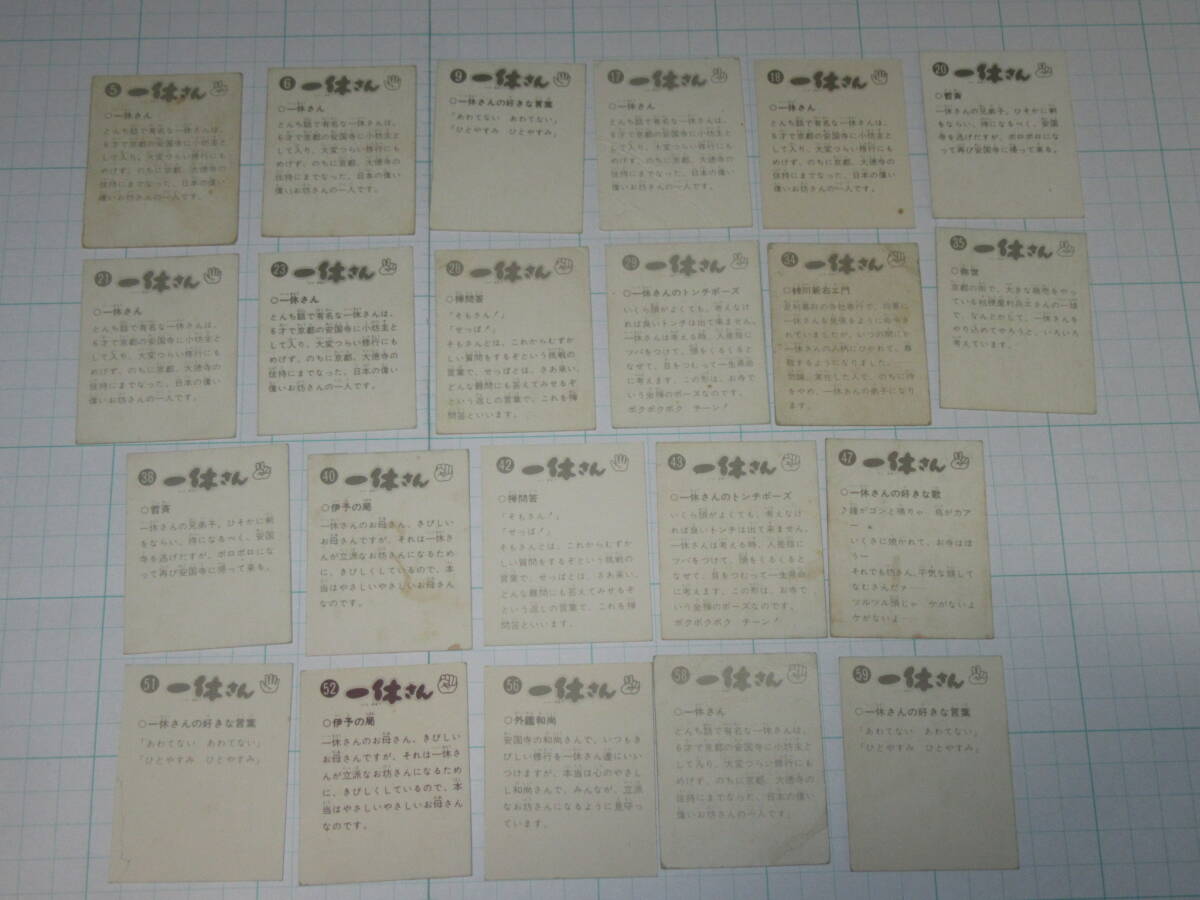 5 一休さん
○一休さん
とんち話で有名な一休さんは、
6才で京都の安国寺に小坊主と
して入り、大変つらい修行にも
めげず、のちに京都、大徳寺の
住持にまでなった、日本の偉い
偉いお坊さんの一人です。
6 一休さん
○一休さん
とんち話で有名な一休さんは、
6才で京都の安国寺に小坊主と
して入り、大変つらい修行にも
めげず、のちに京都、大徳寺の
住持にまでなった、日本の偉い
偉いお坊さんの一人です。
9 一休さん
○一休さんの好きな言葉
「あわてない あわてない」
「ひとやすみ ひとやすみ」
17 一休さん
○一休さん
とんち話で有名な一休さんは、
6才で京都の安国寺に小坊主と
して入り、大変つらい修行にも
めげず、のちに京都、大徳寺の
住持にまでなった、日本の偉い
偉いお坊さんの一人です。
18 一休さん
○一休さん
とんち話で有名な一休さんは、
6才で京都の安国寺に小坊主と
して入り、大変つらい修行にも
めげず、のちに京都、大徳寺の
住持にまでなった、日本の偉い
偉いお坊さんの一人です。
20 一休さん
○哲斉
一休さんの兄弟子。ひそかに剣
をならい、侍になるべく、安国
寺を逃げだすが、ボロボロにな
って再び安国寺に帰って来る。
21 一休さん
○一休さん
とんち話で有名な一休さんは、
6才で京都の安国寺に小坊主と
して入り、大変つらい修行にも
めげず、のちに京都、大徳寺の
住持にまでなった、日本の偉い
偉いお坊さんの一人です。
23 一休さん
○一休さん
とんち話で有名な一休さんは、
6才で京都の安国寺に小坊主と
して入り、大変つらい修行にも
めげず、のちに京都、大徳寺の
住持にまでなった、日本の偉い
偉いお坊さんの一人です。
28 一休さん
○禅問答
「そもさん!」
「せっぱ!」
そもさんとは、これからむずか
しい質問をするぞという挑戦の
言葉で、せっぱとは、さあ来い、
どんな難問にも答えてみせるぞ
という返しの言葉で、これを禅
問答といいます。
29 一休さん
○一休さんのトンチポーズ
いくら頭がよくても、考えなけ
れば良いトンチは出て来ません。
一休さんは考える時、人差指に
ツバをつけて、頭をくるくると
なぜて、目をつむって一生県命
に考えます。この形は、お寺で
いう坐禅のポーズなのです。
ポクポクポク チーン!
34 一休さん
○蜷川新右ェ門
足利幕府の寺社奉行で、将軍に
一休さんを見張るように命令さ
れていましたが、いつの間にか
一休さんの人柄にひかれて、尊
敬するようになりました。
実在した人で、のちに侍
をやめ、一休さんの弟子になり
ます。
35 一休さん
○弥世
京都の町で、大きな商売をやっ
ている桔梗屋利兵エさんの一娘
で、なんとかして、一休さんを
やり込めてやろうと、いろいろ
考えています。
38 一休さん
○哲斉
一休さんの兄弟子。ひそかに剣
をならい、侍になるべく、安国
寺を逃げだすが、ボロボロにな
って再び安国寺に帰って来る。
40 一休さん
○伊予の局
一休さんのお母さん。きびしい
お母さんですが、それは一休さ
んが立派なお坊さんになるため
に、きびしくしているので、本
当はやさしいやさしいお母さん
なのです。
42 一休さん
○禅問答
「そもさん!」
「せっぱ!」
そもさんとは、これからむずか
しい質問をするぞという挑戦の
言葉で、せっぱとは、さあ来い、
どんな難問にも答えてみせるぞ
という返しの言葉で、これを禅
問答といいます。
43 一休さん
○一休さんのトンチポーズ
いくら頭がよくても、考えなけ
れば良いトンチは出て来ません。
一休さんは考える時、人差指に
ツバをつけて、頭をくるくると
なぜて、目をつむって一生県命
に考えます。この形は、お寺で
いう坐禅のポーズなのです。
ポクポクポク チーン!
47 一休さん
○一休さんの好きな歌
♪鐘がゴンと鳴りゃ 烏がカア
ー
いくさに焼かれて、お寺はぼ
うー
それでも坊さん、平気な顔して
なむさんだァー
ツルツル頭じゃ ケがないよ
ケがないよ…
51 一休さん
○一休さんの好きな言葉
「あわてない あわてない」
「ひとやすみ ひとやすみ」
52 一休さん
○伊予の局
一休さんのお母さん。きびしい
お母さんですが、それは一休さ
んが立派なお坊さんになるため
に、きびしくしているので、本
当はやさしいやさしいお母さん
なのです。
56 一休さん
○外鑑和尚
安国寺の和尚さんで、いつもき
びしい修行を一休さん達にいい
つけますが、本当は心のやさし
い和尚さんで、みんなが、立派
なお坊さんになるように見守っ
ています。
58 一休さん
○一休さん
とんち話で有名な一休さんは、
6才で京都の安国寺に小坊主と
して入り、大変つらい修行にも
めげず、のちに京都、大徳寺の
住持にまでなった、日本の偉い
偉いお坊さんの一人です。
59 一休さん
○一休さんの好きな言葉
「あわてない あわてない」
「ひとやすみ ひとやすみ」